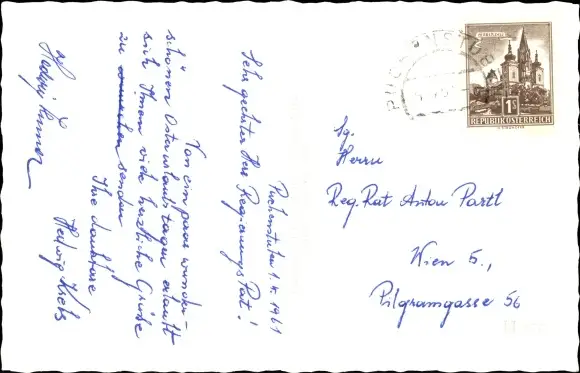 Puchenstuben 1. 4. 1961
Sehr geehrter Herr Regierungs Rat!
Von ein paar wunder-
schönen Osterurlaubstagen erlaubt
sich Ihnen viele herzliche Grüße
zu senden
Ihre dankbare
Hedwig Krebs
MARIAZELL
1S
REPUBLIK ÖSTERREICH
PUCHENSTUBEN
Sg.
Herrn
Reg. Rat Anton Partl
Wien 5.,
Pilgramgasse 56